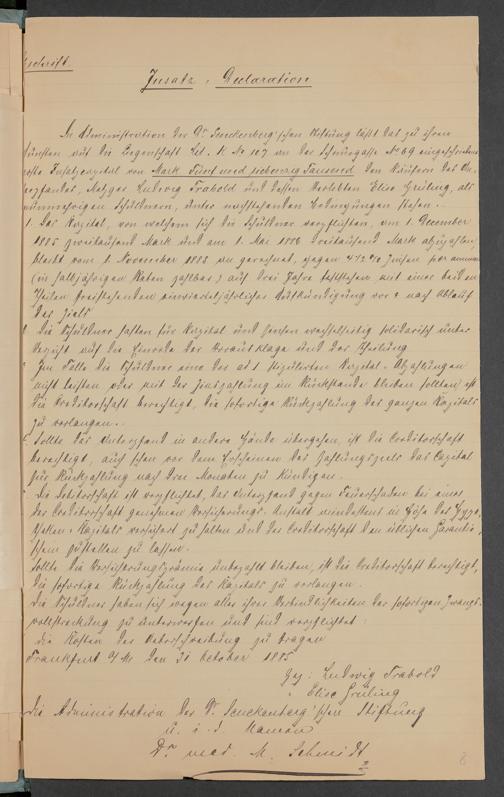 Abschrift
Zusatz-Declaration
Die Administration der Dr. Senckenberg'schen Stiftung läßt das zu ihren
Gunsten auf die Liegenschaft Lit. K No 107 in der Schnurgasse No 69 eingeschriebene
erste Insatzcapital von Mark Fünf und siebenzig Tausend den Käufern des Un-
terpfandes, Metzger Ludwig Trabold und dessen Verlobten Elise Grüling, als
nunmehrigen Schuldnern, unter nachstehenden Bedingungen stehen:
1. Das Kapital, von welchem sich die Schuldner verpflichten, am 1. December
1885 zweitausend Mark und am 1. Mai 1886 dreitausend Mark abzuzahlen,
bleibt vom 1. November 1885 an gerechnet, gegen 4 1/2 % Zinsen per annum
(in halbjährigen Raten zahlbar) auf drei Jahre feststehen mit einer beiden
Theilen freistehenden einvierteljährlichen Aufkündigung vor & nach Ablauf
des Ziels
Die Schuldner haften für Kapital und Zinsen wechselseitig solidarisch unter
Verzicht auf die Einrede der Vorausklage und der Theilung
Im Falle die Schuldner eine der ad 1 stipulirten Kapital-Abzahlungen
nicht leisten oder mit der Zinszahlung im Rückstande bleiben sollten, ist
die Creditorschaft berechtigt, die sofortige Rückzahlung des ganzen Kapitals
zu verlangen.
Sollte das Unterpfand in andere Hände übergehen, ist die Creditorschaft
berechtigt, auch schon vor dem Erscheinen des Zahlungsziels das Capital
zur Rückzahlung nach drei Monaten zu kündigen.
Die Debitorschaft ist verpflichtet, das Unterpfand gegen Feuerschaden bei einer
der Creditorschaft genehmen Versicherungs-Anstalt mindestens in Höhe des Hypo-
theken-Kapitals versichert zu halten und der Creditorschaft den üblichen Garantie-
schein zustellen zu lassen.
Sollte die Versicherungsprämie unbezahlt bleiben, ist die Creditorschaft berechtigt,
die sofortige Rückzahlung des Kapitals zu verlangen.
Die Schuldner haben sich wegen aller ihrer Verbindlichkeiten der sofortigen Zwangs-
vollstreckung zu unterwerfen und sind verpflichtet
die Kosten der Ueberschreibung zu tragen
Frankfurt a/M. den 31 October 1885
Gez: Ludwig Trabold
" Elise Grüling
Die Administration der Dr. Senckenberg'schen Stiftung
u. i. d. Namen
Dr. med. M. Schmidt
8